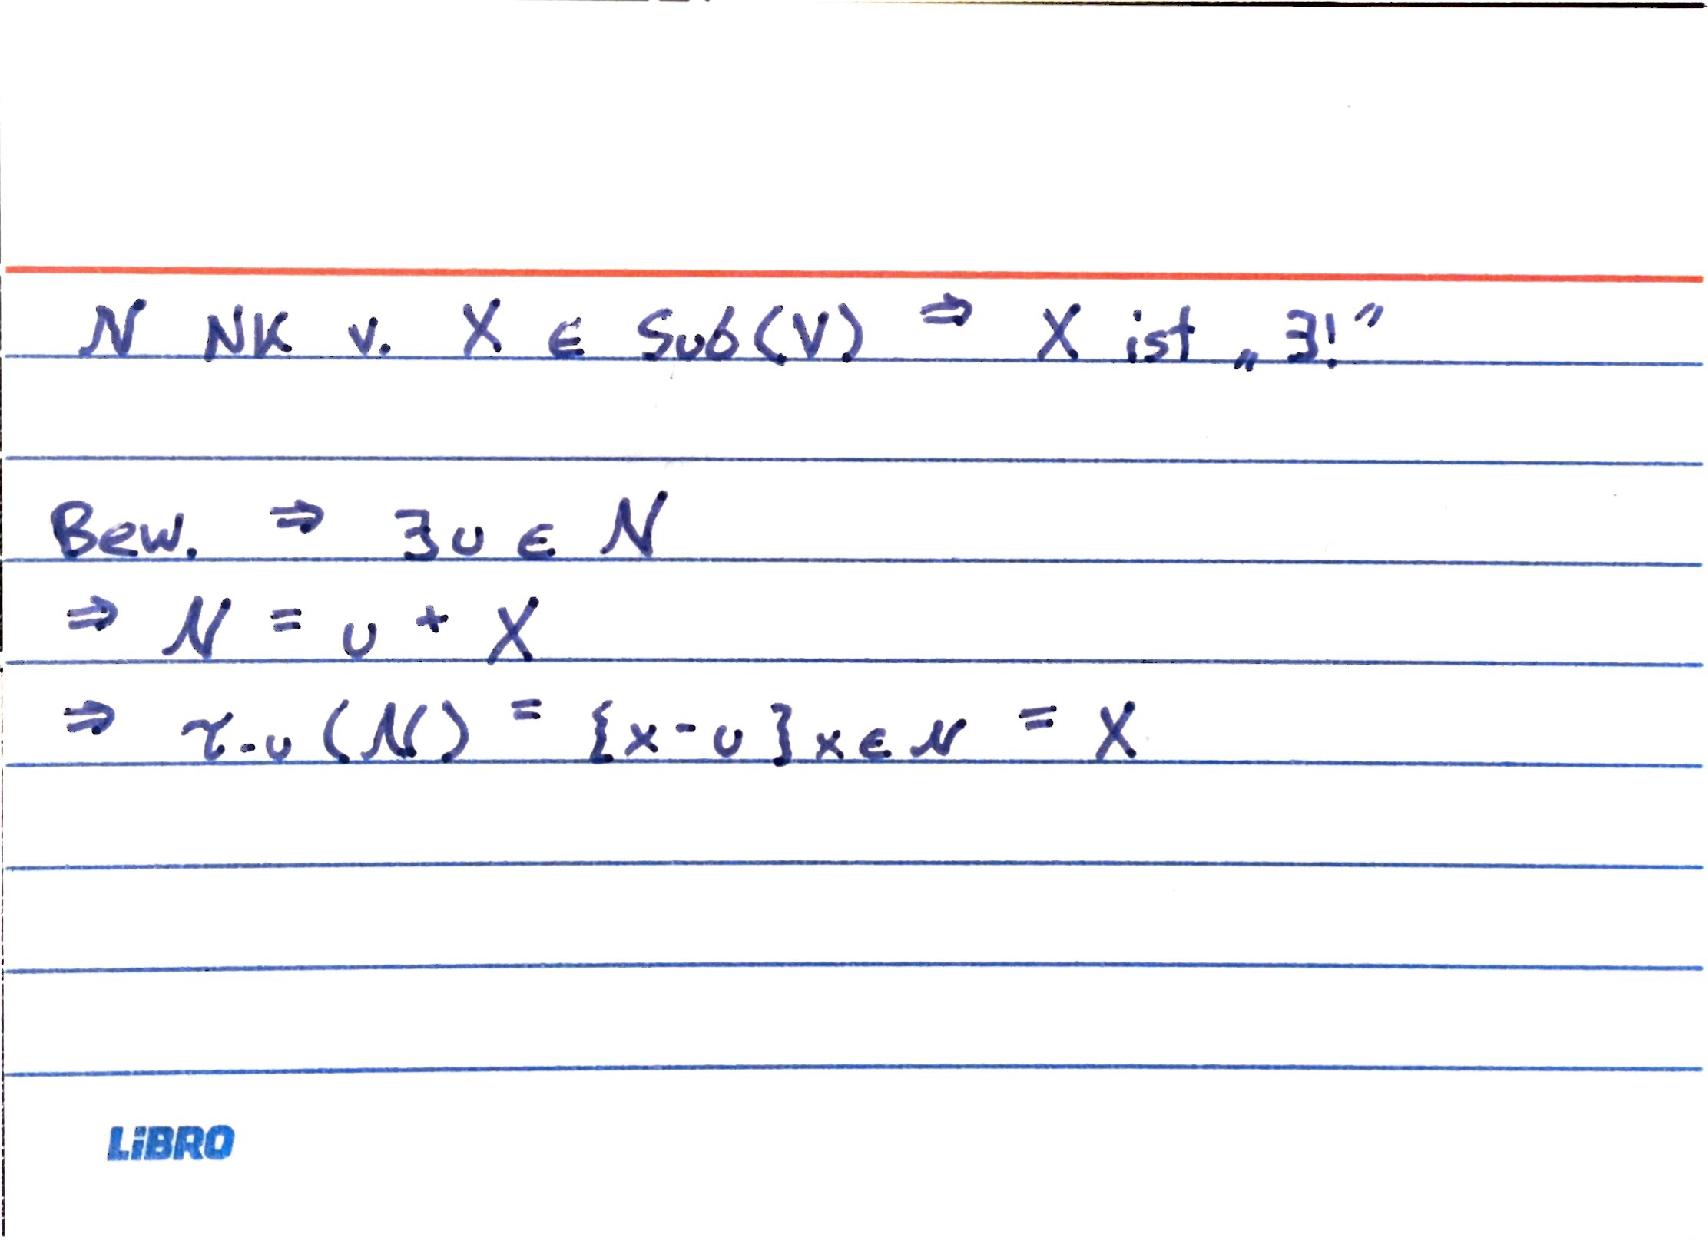 N NK v. X ∈ Sub(V) ⇒ X ist „∃!”
Bew. ⇒ ∃ u ∈ N
⇒ N = u + X
⇒ τ-u (N) = {x-u}x∈N = X
LiBRO